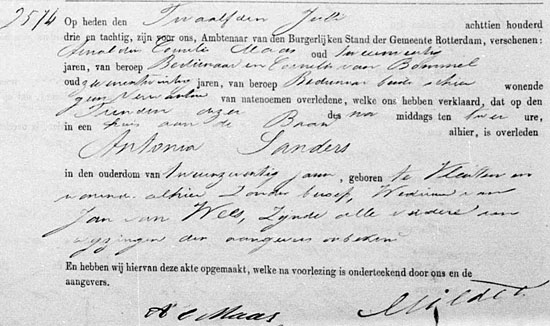 2574 Op heden den Twaalfden Juli achttien honderd
drie en tachtig, zijn voor ons, Ambtenaar van den Burgerlijken Stand der Gemeente Rotterdam, verschenen:
Cornelis Maas oud
jaren, van beroep Bedienaar en Cornelis van Bommel
oud jaren, van beroep Bedienaar beide alhier wonende
geen van natenoemen overledene, welke ons hebben verklaard, dat op den
Tienden dezer des na middags ten twee ure,
in een huis aan de Baan alhier, is overleden
Antonia Sanders
in den ouderdom van jaren, geboren te en
wonende alhier zonder beroep, Weduwe van
Jan van Wels, zijnde alle verdere aan
wijzingen den aangevers onbekend
En hebben wij hiervan deze akte opgemaakt, welke na voorlezing is onderteekend door ons en de
aangevers.
A C Maas